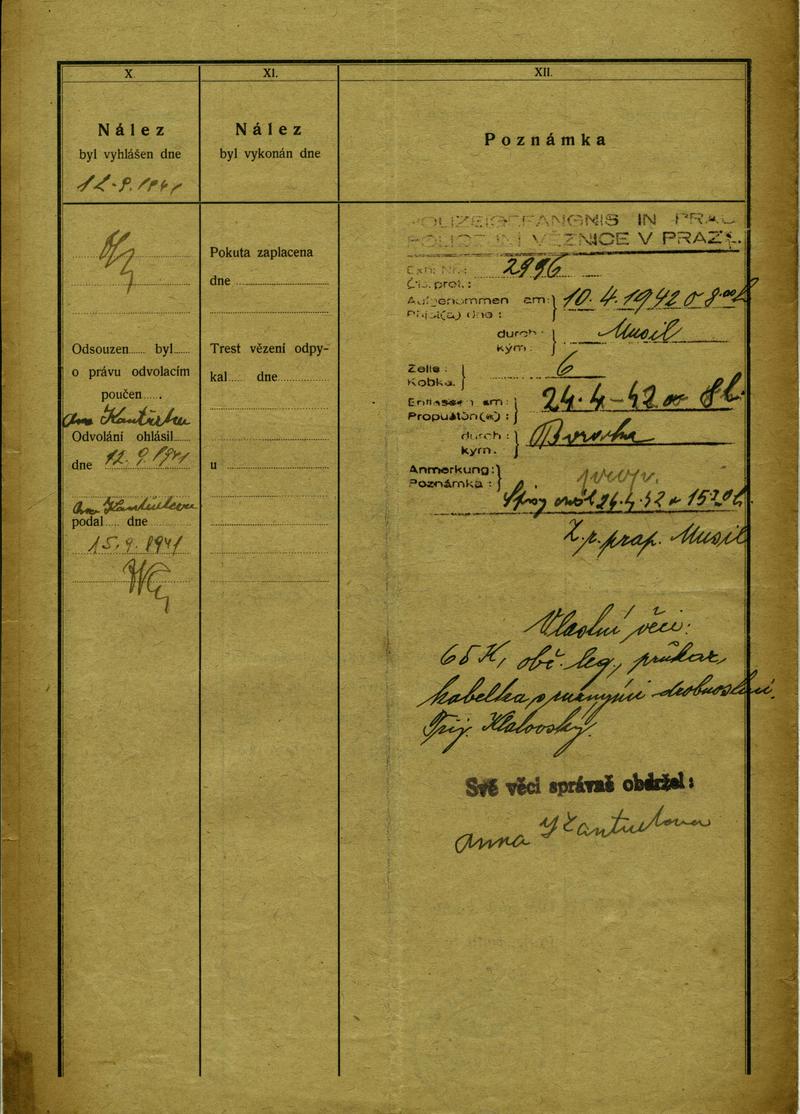 X.
Nález
byl vyhlášen dne
12.9.1941
Odsouzen...... byl......
o právu odvolacím
poučen......
Odvolání ohlásil......
dne 12.9.1941
podal...... dne
15.9.1941
XI.
Nález
byl vykonán dne
Pokuta zaplacena
dne
Trest vězení odpy-
kal...... dne
u
XII.
Poznámka
POLIZEIGEFÄNGNIS IN PRAG
POLICEJNÍ VĚZNICE V PRAZE.
Exh. Nr.: 2996
Čís. prot.:
Aufgenommen am: 10.4.1942 o 8.00 h
Přijat(a) dne:
durch: Musil
kým:
Zelle: 6
Kobka:
Entlassen am: 24.4-42 8 h.
Propuštěn(a):
durch:
kým:
Anmerkung:
Poznámka:
24.4.42 1520 h.
prap. Musil
Vlastní věci:
65 K, obč. leg., průkaz,
kabelka s různými drobnostmi.
Přij. Klatovský.
Své věci správně obdržel:
Anna